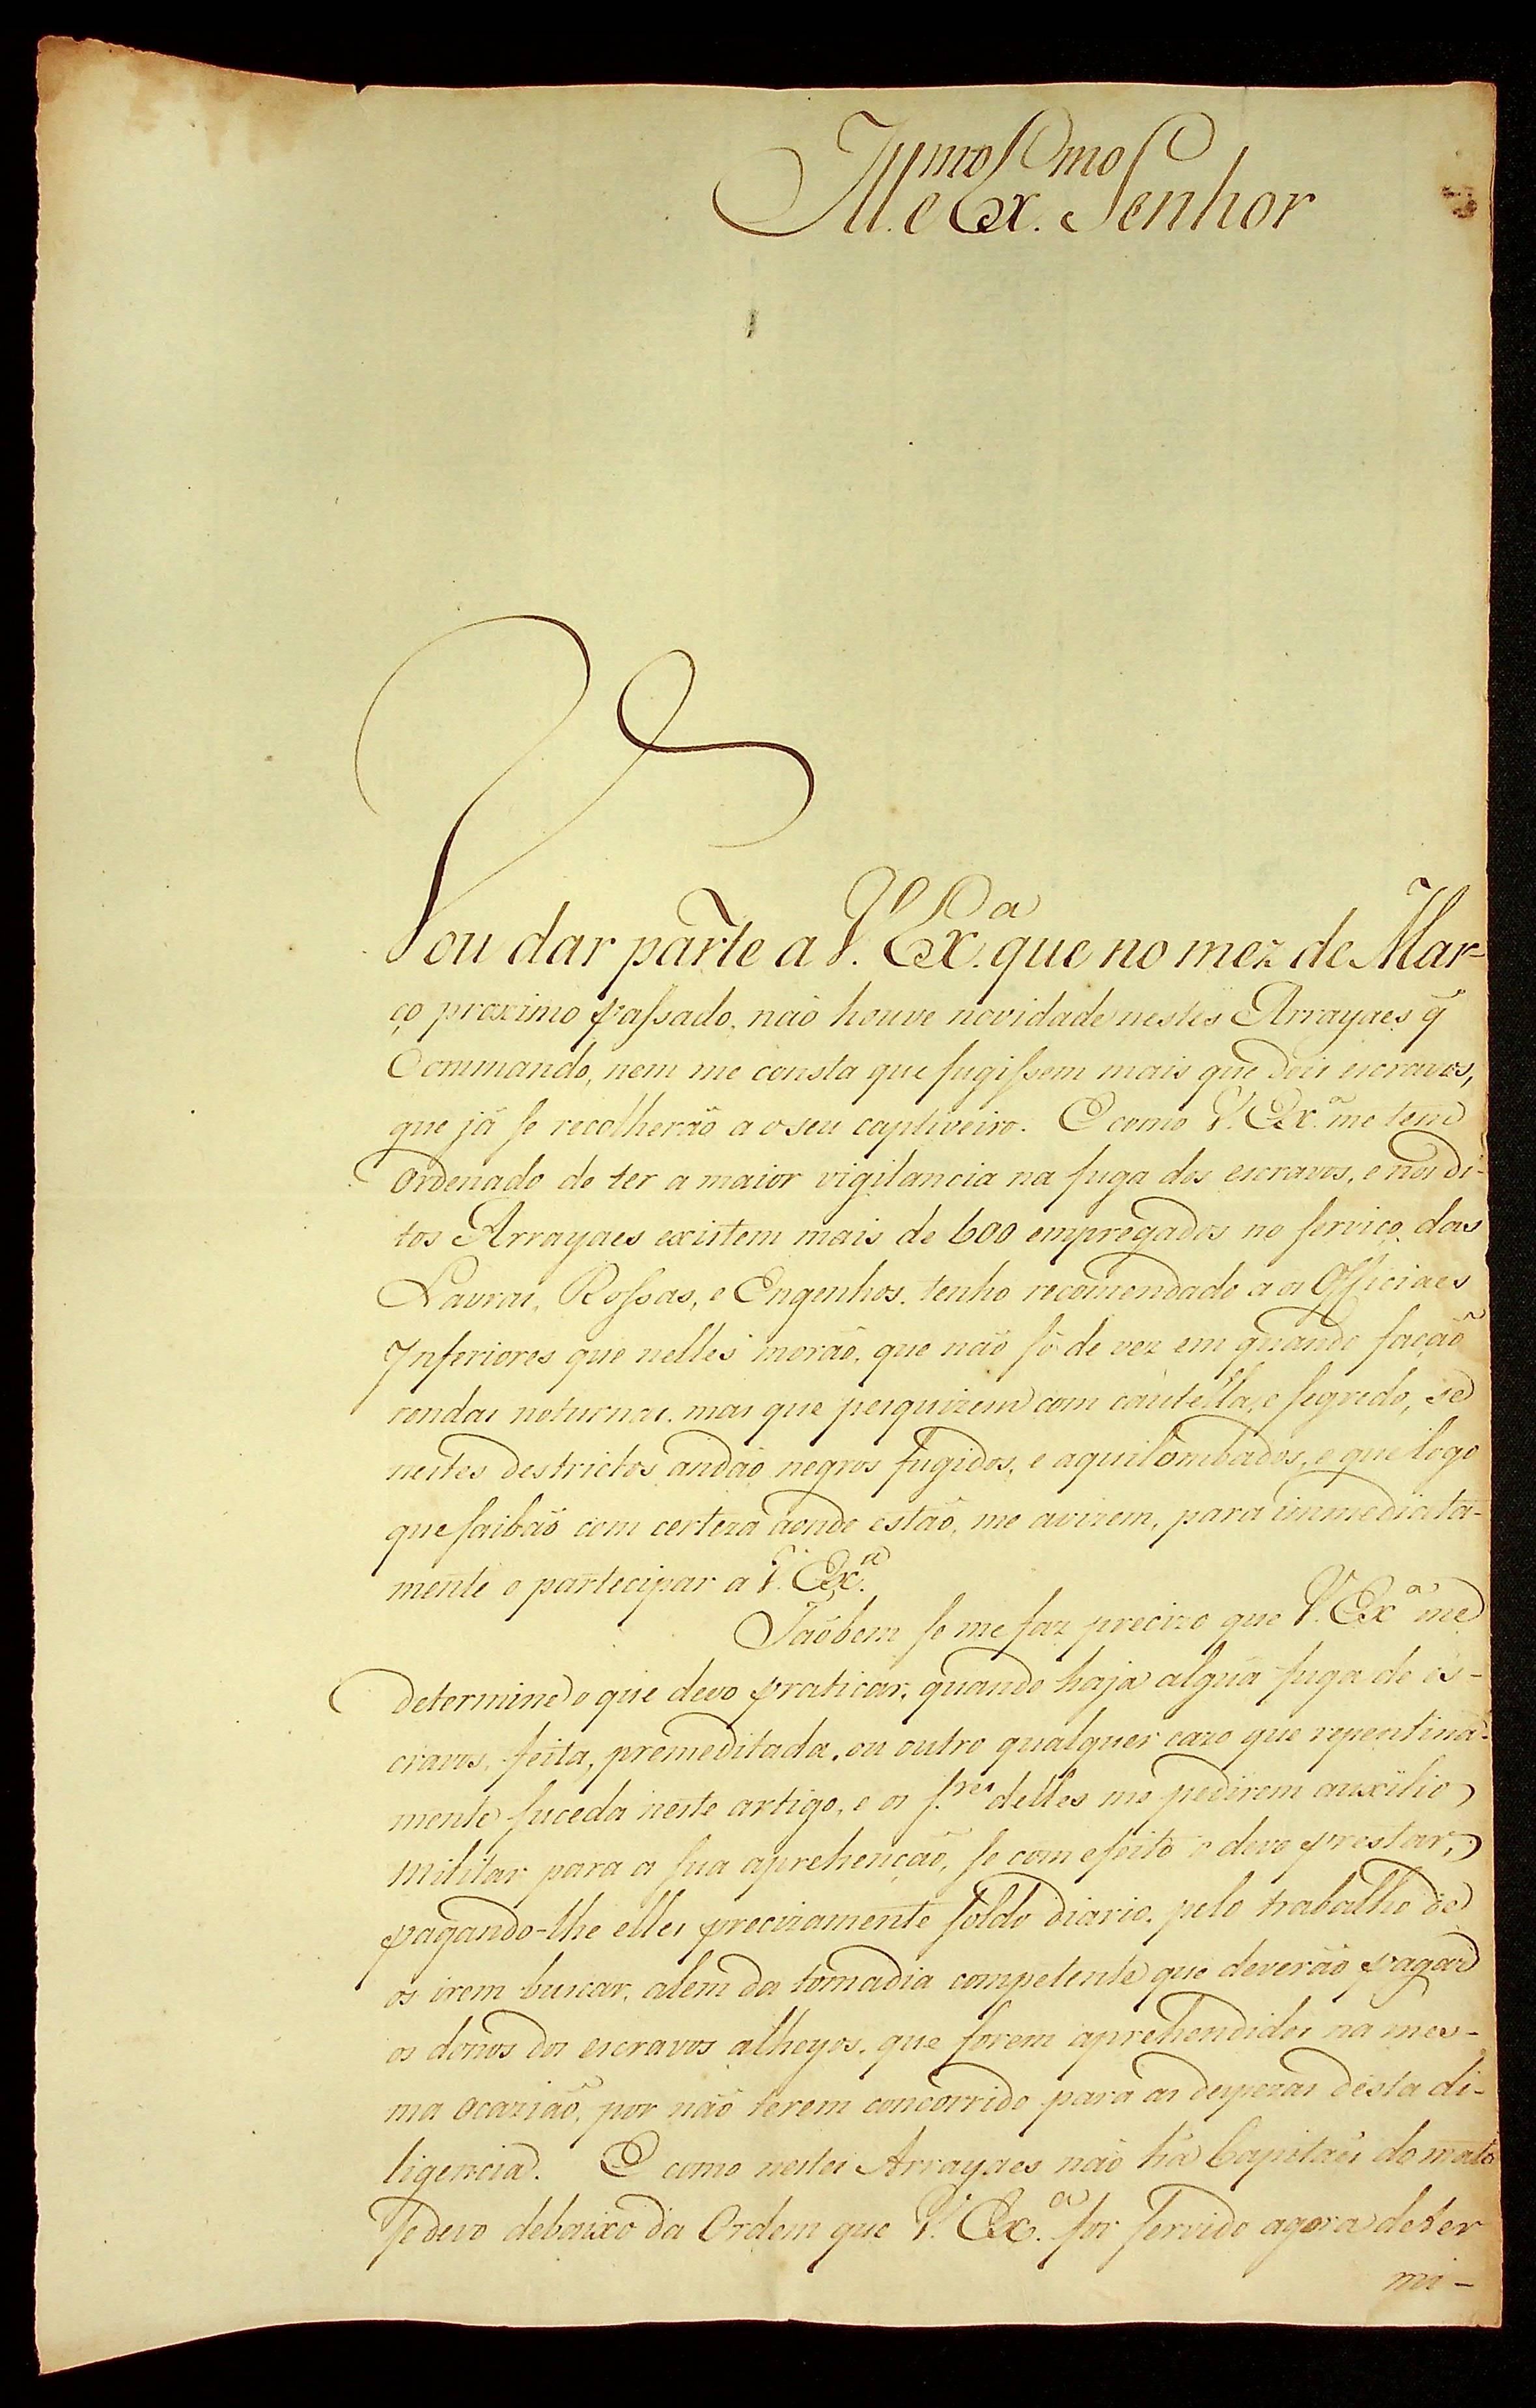 Ill.mo e Ex.mo Senhor
Vou dar parte a V. Ex.a que no mez de Mar-
ço proximo passado, não houve novidade nestes Arrayaes q̃
Commando, nem me consta que fugissem mais que dois escravos,
que já se recolherão a o seu captiveiro. E como V. Ex.a me tem
Ordenado de ter a maior vigilancia na fuga dos escravos, e nos di-
tos Arrayaes existem mais de 600 empregados no serviço das
Lavras, Rossas, e Engenhos, tenho recomendado a os Officiaes
Inferiores que nelles morão, que não só de vez em quando fação
rondas noturnas, mas que pesquizem com cautella, e segredo, se
nestes destrictos andão negros fugidos, e aquilombados, e que logo
que saibão com certeza aonde estão, me avizem, para immediata-
mente o partecipar a V. Ex.a
Tãobem se me faz precizo que V. Ex.a me
determine o que devo praticar, quando haja algũa fuga de es-
cravos, feita, premeditada, ou outro qualquer cazo que repentina-
mente suceda neste artigo, e os s.res delles me pedirem auxilio
Militar para a sua aprehenção, se com efeito o devo prestar,
pagando-lhe elles precizamente soldo diario, pelo trabalho de
os irem buscar, alem da tomadia competente que deverão pagar
os donos dos escravos alheyos, que forem aprehendidos na mes-
ma ocazião, por não terem concorrido para as despezas desta di-
ligencia. E como nestes Arrayaes não há Capitães do mato
se devo debaixo da Ordem que V. Ex.a for servido agora deter
mi-